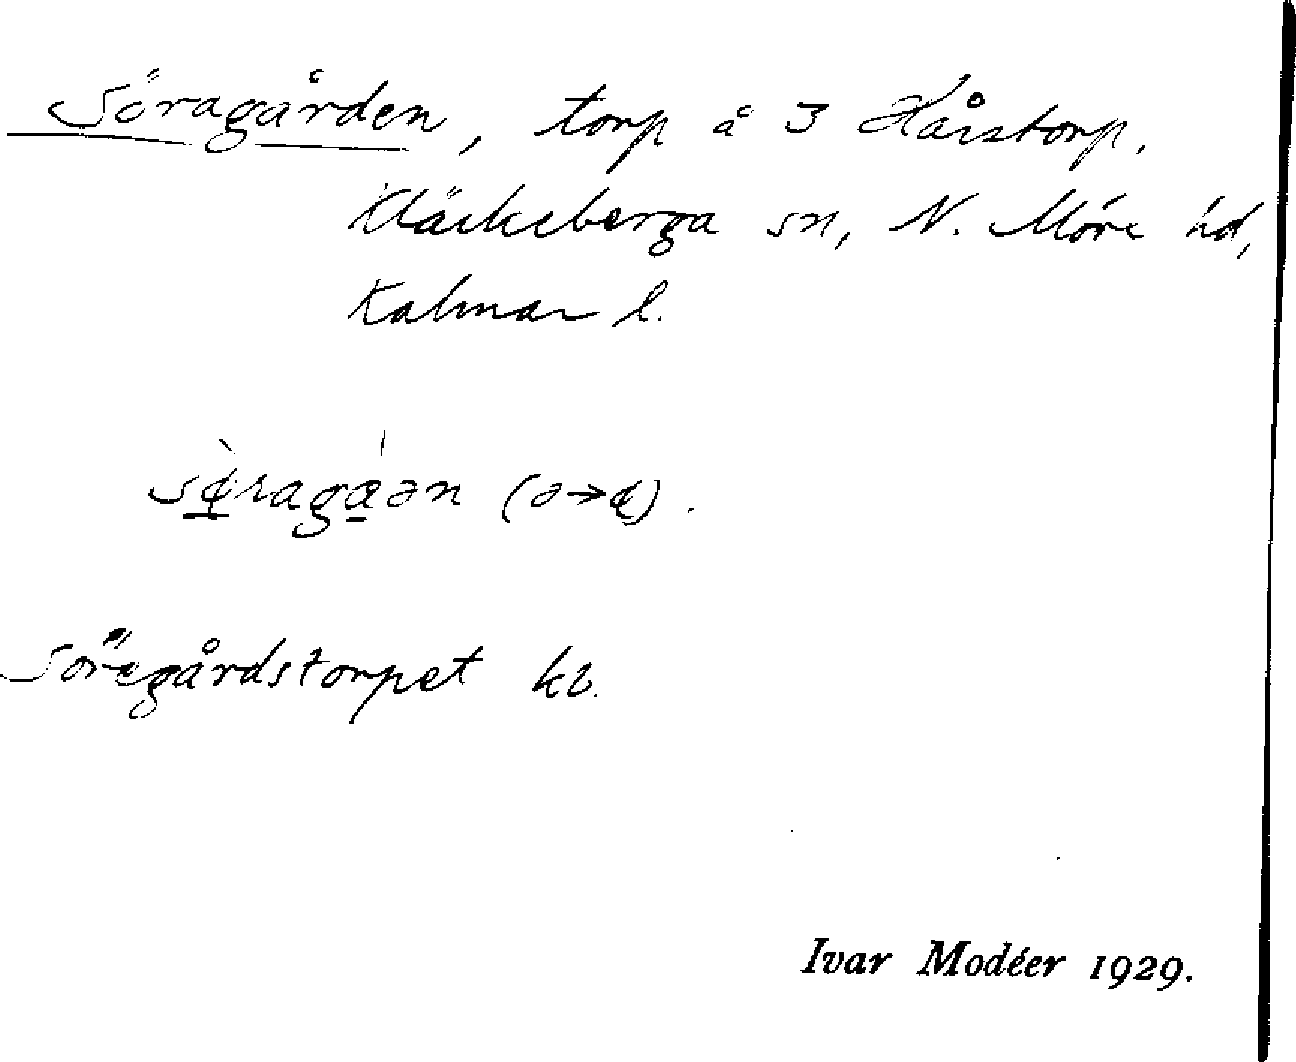 Söragården, torp å 3 Hårstorp,
Kläckeberga sn, N. Möre hd,
Kalmar l.
(ə→
Söregårdstorpet kb.
Ivar Modéer 1929.